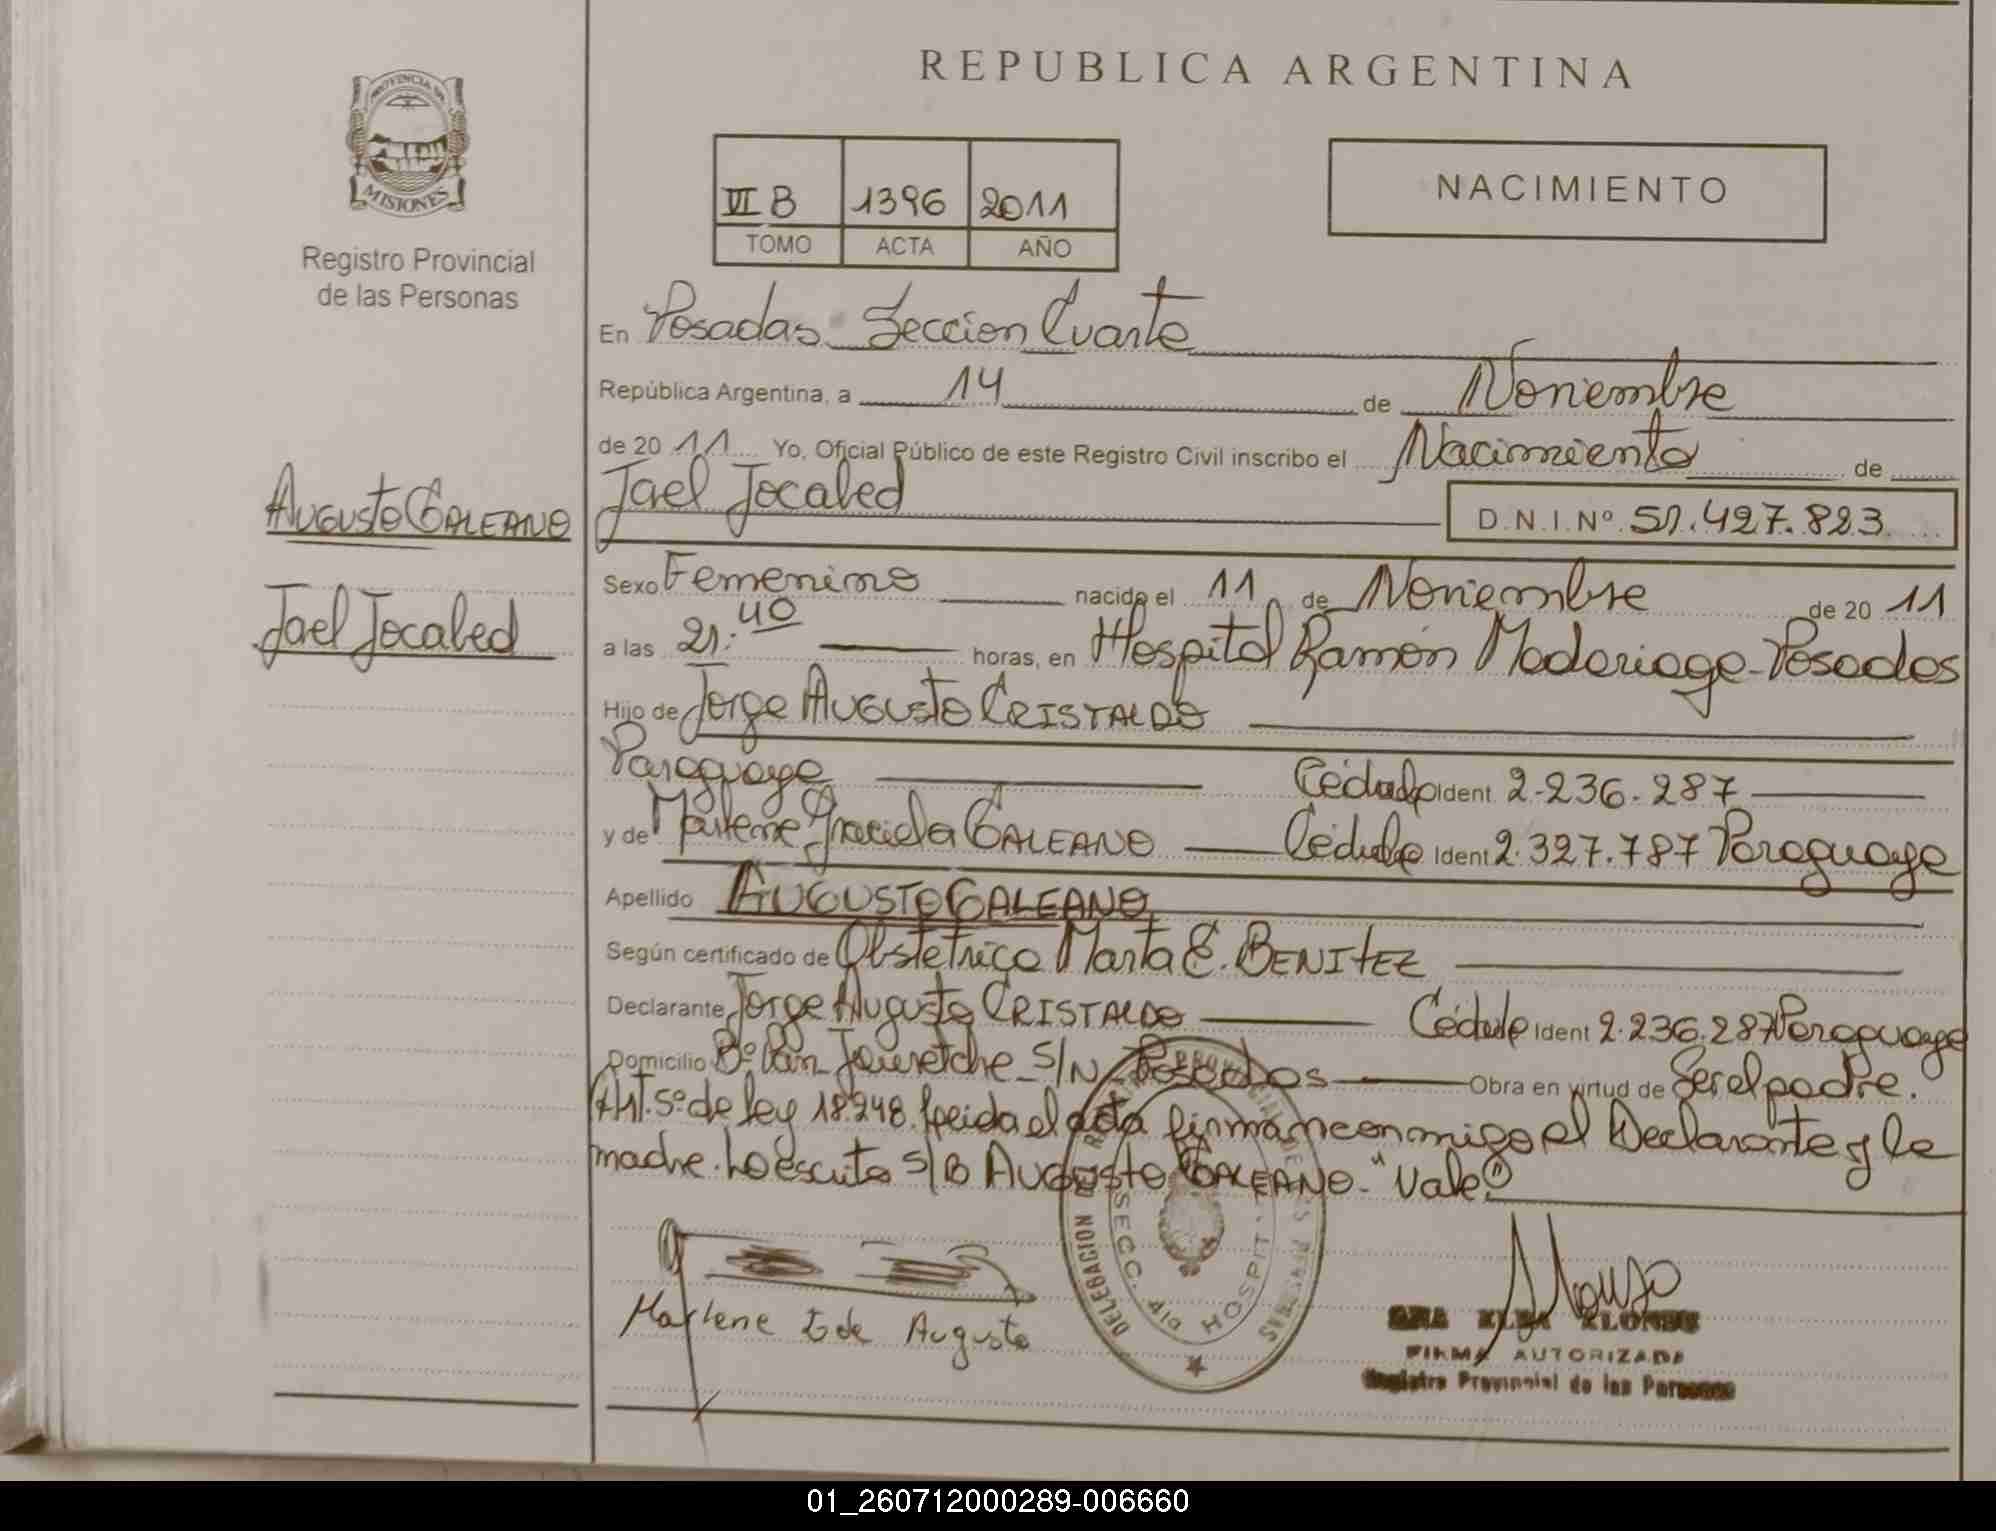 REPUBLICA ARGENTINA
PROVINCIA DE
MISIONES
Registro Provincial
de las Personas
VI B 1396 2011
TOMO ACTA AÑO
NACIMIENTO
En Posadas Seccion Cuarta
República Argentina, a 14 de Noviembre
de 20 11 Yo, Oficial Público de este Registro Civil inscribo el Nacimiento de
Augusto GALEANO
Jael Jocabed
Jael Jocabed D.N.I. Nº 51.427.823
Sexo Femenino nacido el 11 de Noviembre de 20 11
a las 21:40 horas, en Hospital Ramón Madariaga-Posadas
Hijo de Jorge AUGUSTO CRISTALDO
Paraguaya Cédula Ident 2.236.287
y de Marlene Graciela GALEANO Cédula Ident 2.327.787 Paraguaya
Apellido AUGUSTO GALEANO
Según certificado de Obstetrica Marta E. BENITEZ
Declarante Jorge Augusto CRISTALDO Cédula Ident 2.236.287 Paraguaya
Domicilio Bº San Jauretche S/N Posadas Obra en virtud de Ser el padre.
Art. 5º de ley 18.248. Leida el acta firman conmigo el Declarante y la
madre. Lo escrito S/B AUGUSTO GALEANO- "Vale"
Marlene G de Augusto
DELEGACION REG. PROVINCIAL DE LAS PERSONAS
SECC. 4ta HOSPIT.
Alonso
SRA ELBA ALONSO
FIRMA AUTORIZADA
Registro Provincial de las Personas
01_260712000289-006660